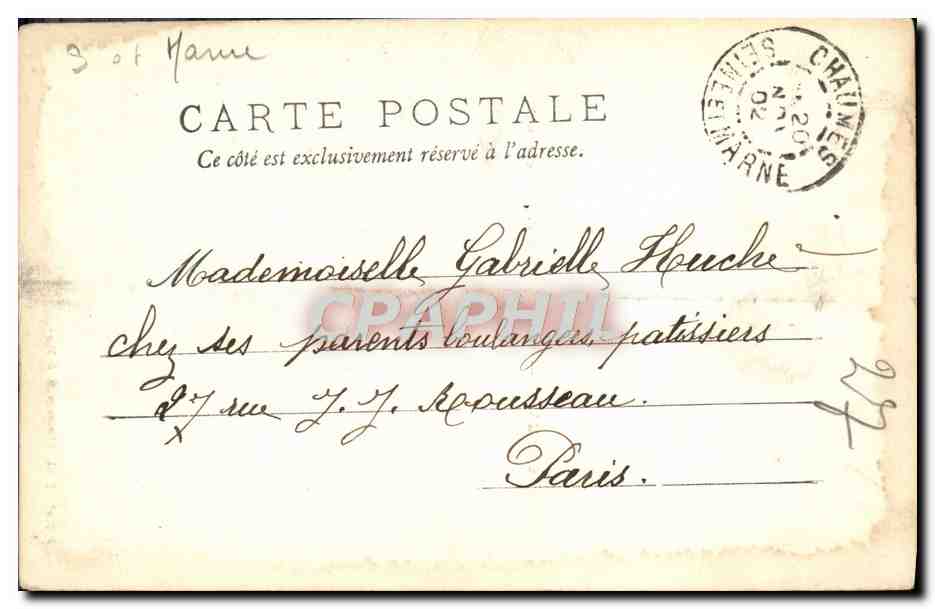 S et Marne
CARTE POSTALE
Ce côté est exclusivement réservé à l'adresse.
CHAUMES
SEINE ET MARNE
20
NOV
02
Mademoiselle Gabrielle Huche
CPAPHIL
chez ses parents boulangers, patissiers
27 rue J. J. Rousseau.
Paris.